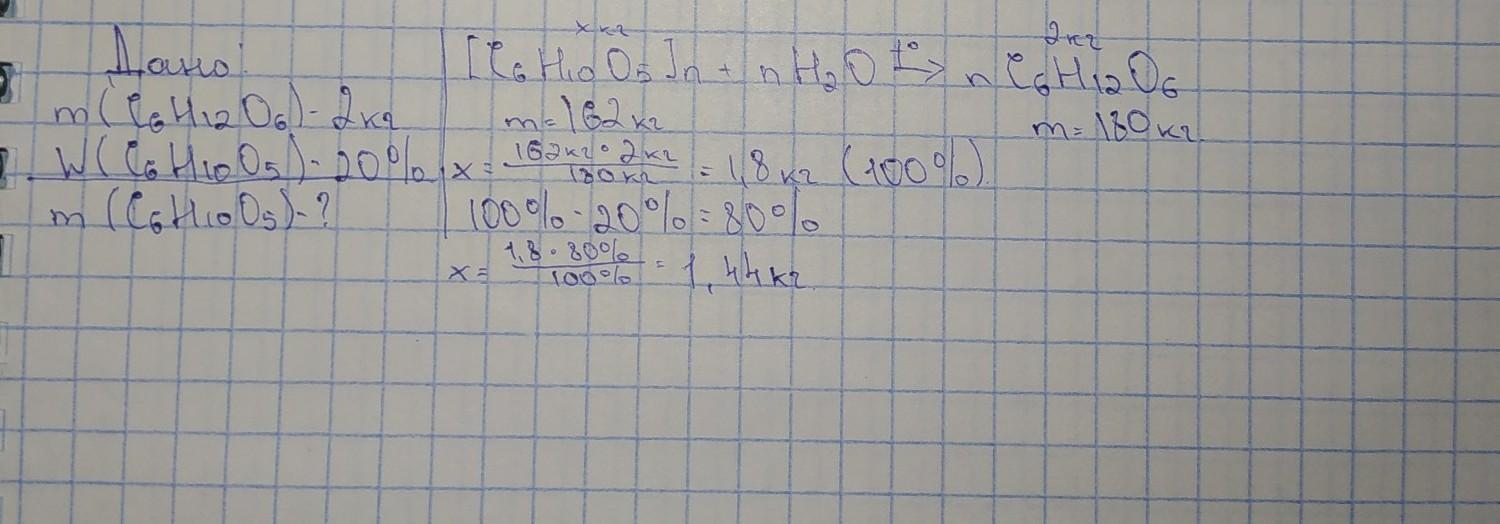 Дано:
m(C₆H₁₂O₆) - 2кг
W(C₆H₁₀O₅) - 20%
m(C₆H₁₀O₅) - ?
xкг 2кг
[C₆H₁₀O₅]n + nH₂O t°→ nC₆H₁₂O₆
m=162кг m=180кг
x= 162кг·2кг / 180кг = 1,8кг (100%).
100% - 20% = 80%
x= 1,8·80% / 100% = 1,44кг.